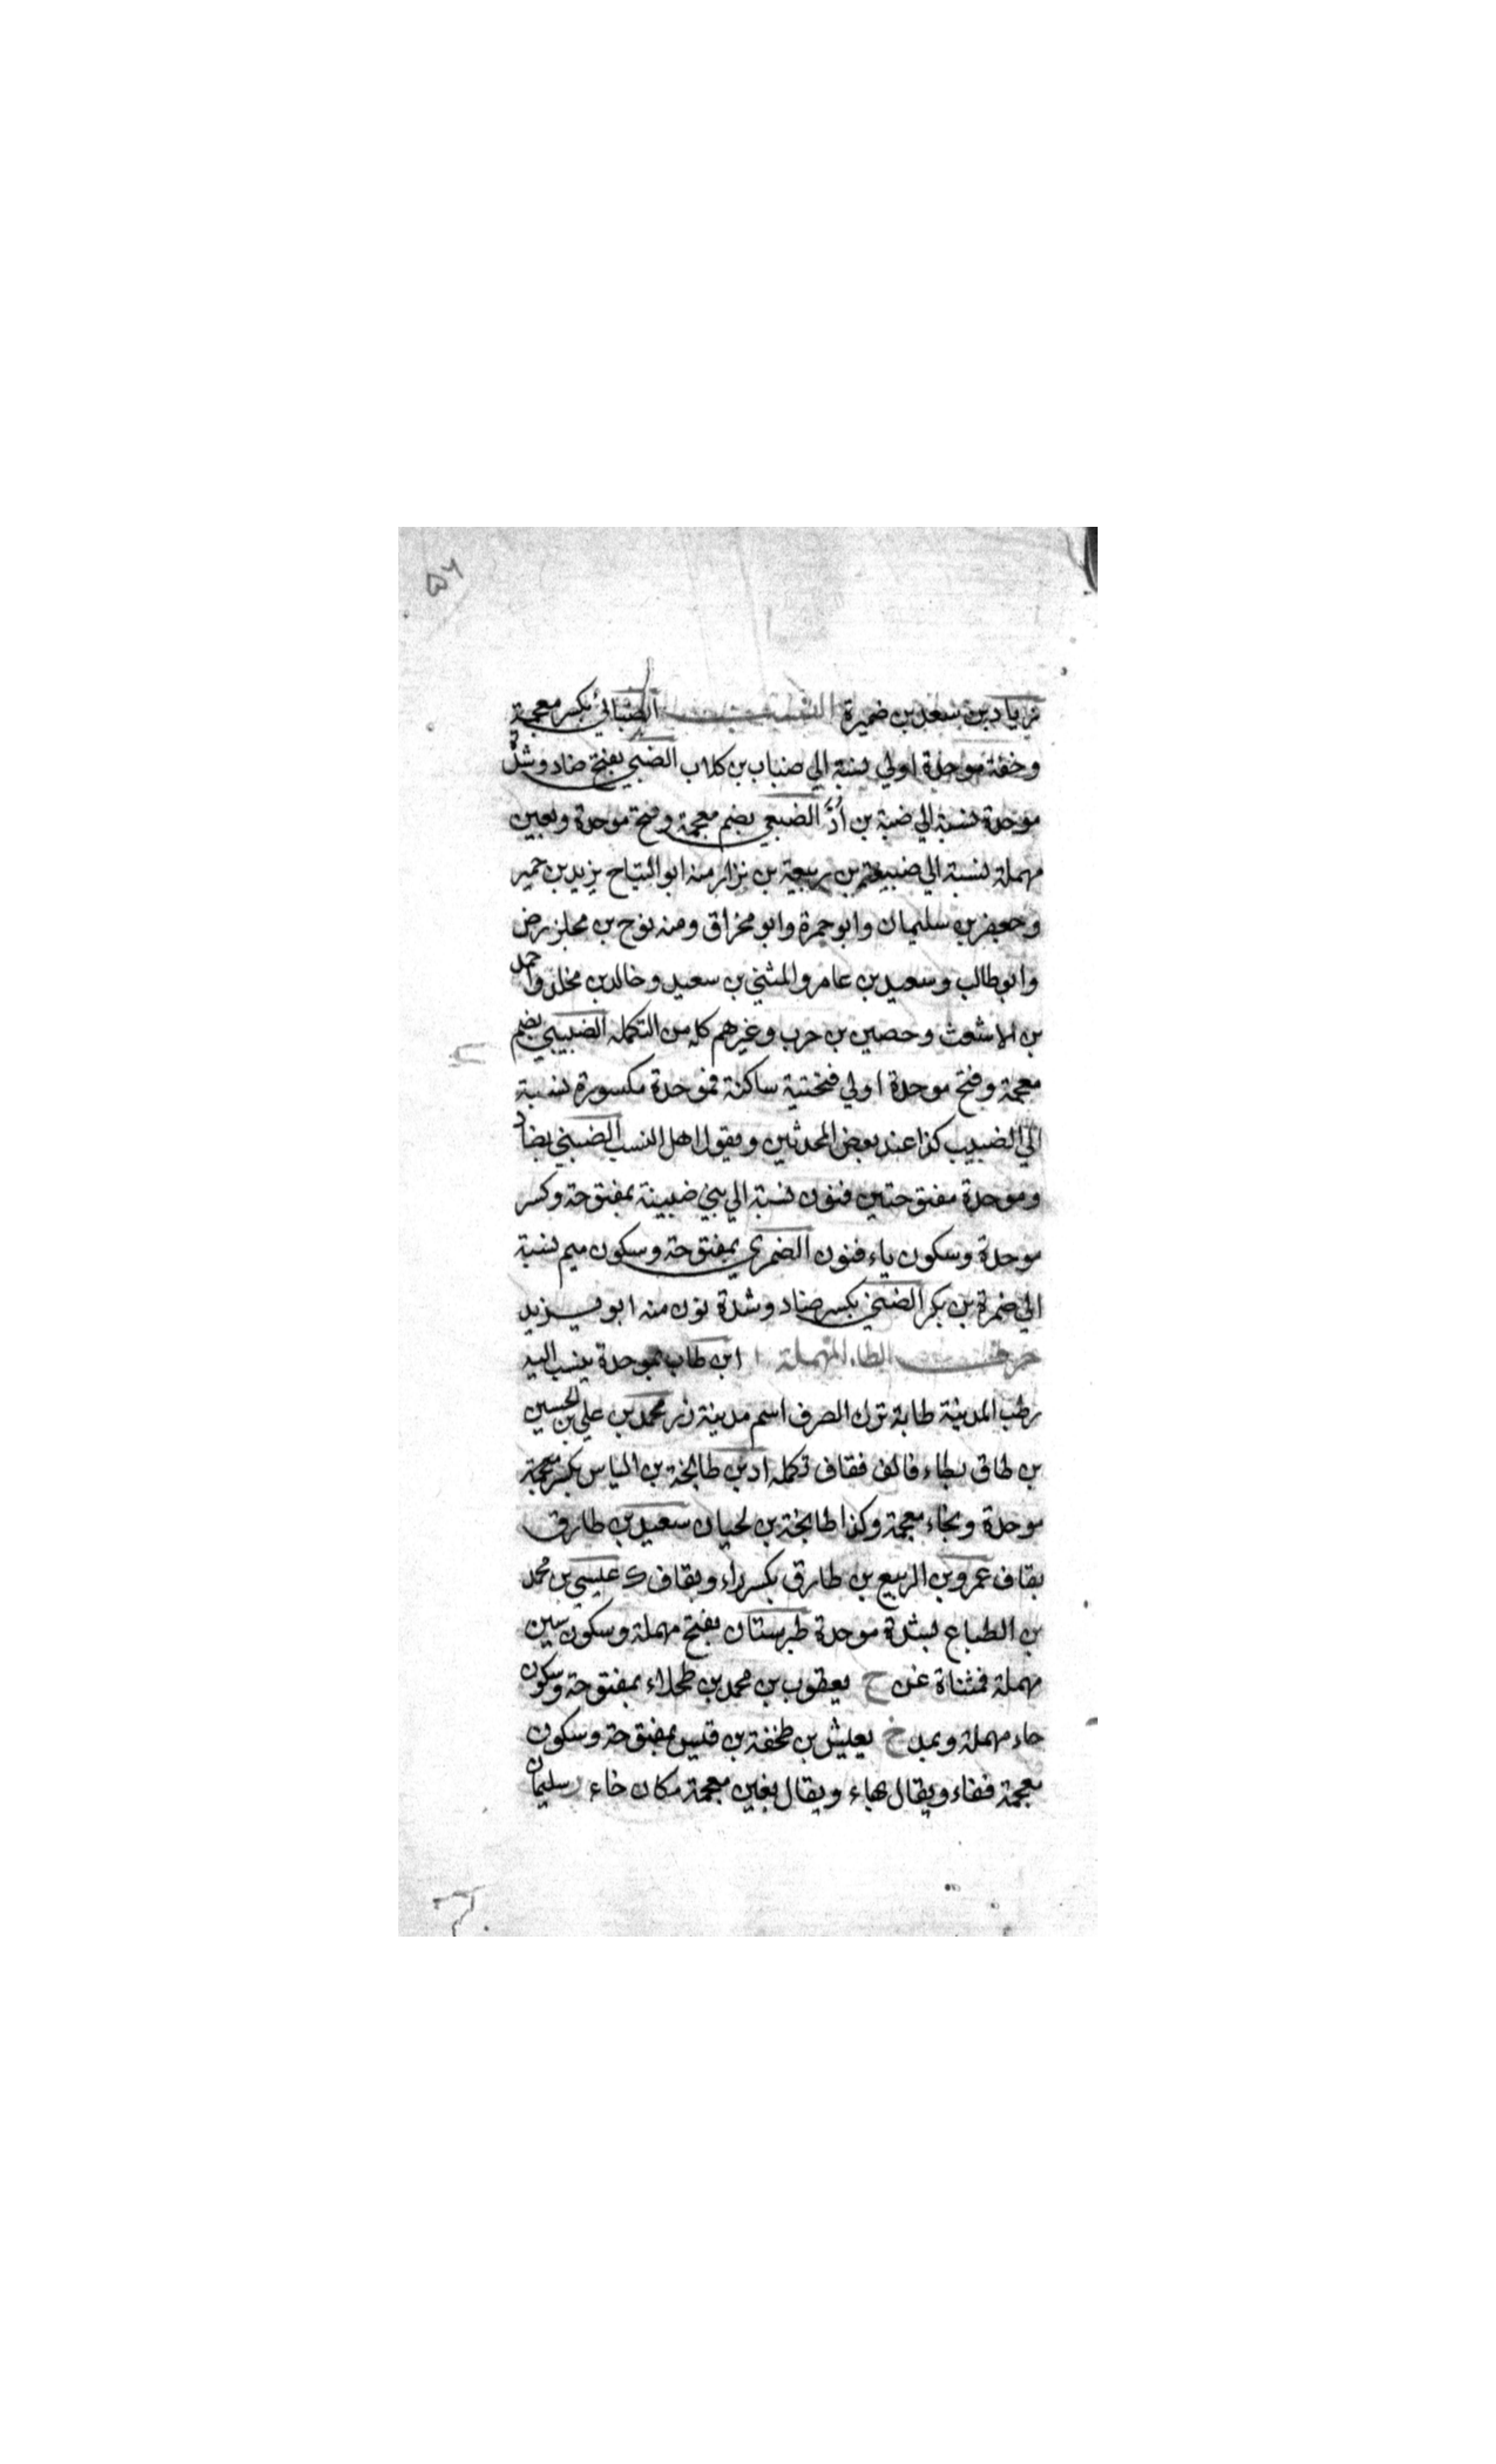 ٥٦
زياد بن سعد بن ضميرة النسب الضبابي بكسر معجمة
وخفة موحدة اولي نسبة الي ضباب بن كلاب الضبي بفتح ضاد وشدة
موحدة نسبة الي ضبة بن أدّ الضبعي بضم معجمة وفتح موحدة وبعين
مهملة نسبة الي ضبيعة بن ربيعة بن نزار منه ابو التياح يزيد بن حمير
وجعفر بن سليمان وابو جمرة وابو مخراق ومنه نوح بن مخلد رض
وابو طالب وسعيد بن عامر والمثني بن سعيد وخالد بن مخلد واحمد
بن الاشعث وحصين بن حرب وغيرهم كله من التكمله الضبيبي بضم
معجمة وفتح موحدة اولي فتحتية ساكنة فموحدة مكسورة نسبة
الي الضبيب كذا عند بعض المحدثين ويقول اهل النسب الضبني بضاد
وموحدة مفتوحتين فنون نسبة الي بني ضبينة بمفتوحة وكسر
موحدة وسكون ياء فنون الضمري بمفتوحة وسكون ميم نسبة
الي ضمرة بن بكر الضني بكسر ضاد وشدة نون منه ابو يزيد
حرف الطاء المهملة ابن طاب بموحدة ينسب اليه
رطب المدينة طابة بترك الصرف اسم مدينة ن ر محمد بن علي بن الحسين
بن طاق بطاء فالف فقاف تكمله اد بن طابخة بن الياس بكسر
موحدة وبخاء معجمة وكذا طابخة بن لحيان سعيد بن طارق
بقاف عمرو بن الربيع بن طارق بكسر راء وبقاف ك عيسي بن محمد
بن الطباع بشدة موحدة طبرستان بفتح مهملة وسكون سين
مهملة فمثناة غن ح يعقوب بن محمد بن طحلاء بمفتوحة وسكون
حاء مهملة وبمد خ يعيش بن طخفة بن قيس بمفتوحة وسكون
معجمة ففاء ويقال بهاء ويقال بغين معجمة مكان خاء سليمان